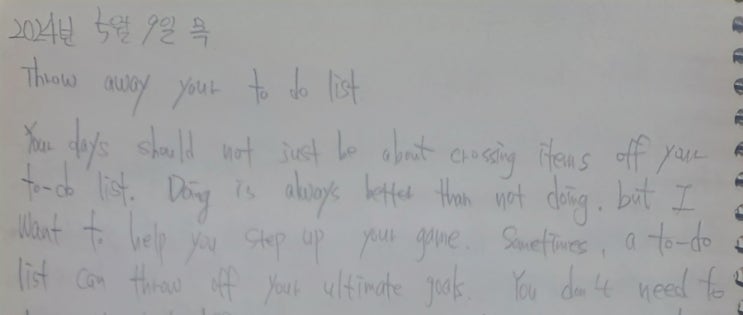 2024년 5월 9일 목
Throw away your to do list
Your days should not just be about crossing items off your
to-do list. Doing is always better than not doing, but I
want to help you step up your game. Sometimes, a to-do
list can throw off your ultimate goals. You don't need to